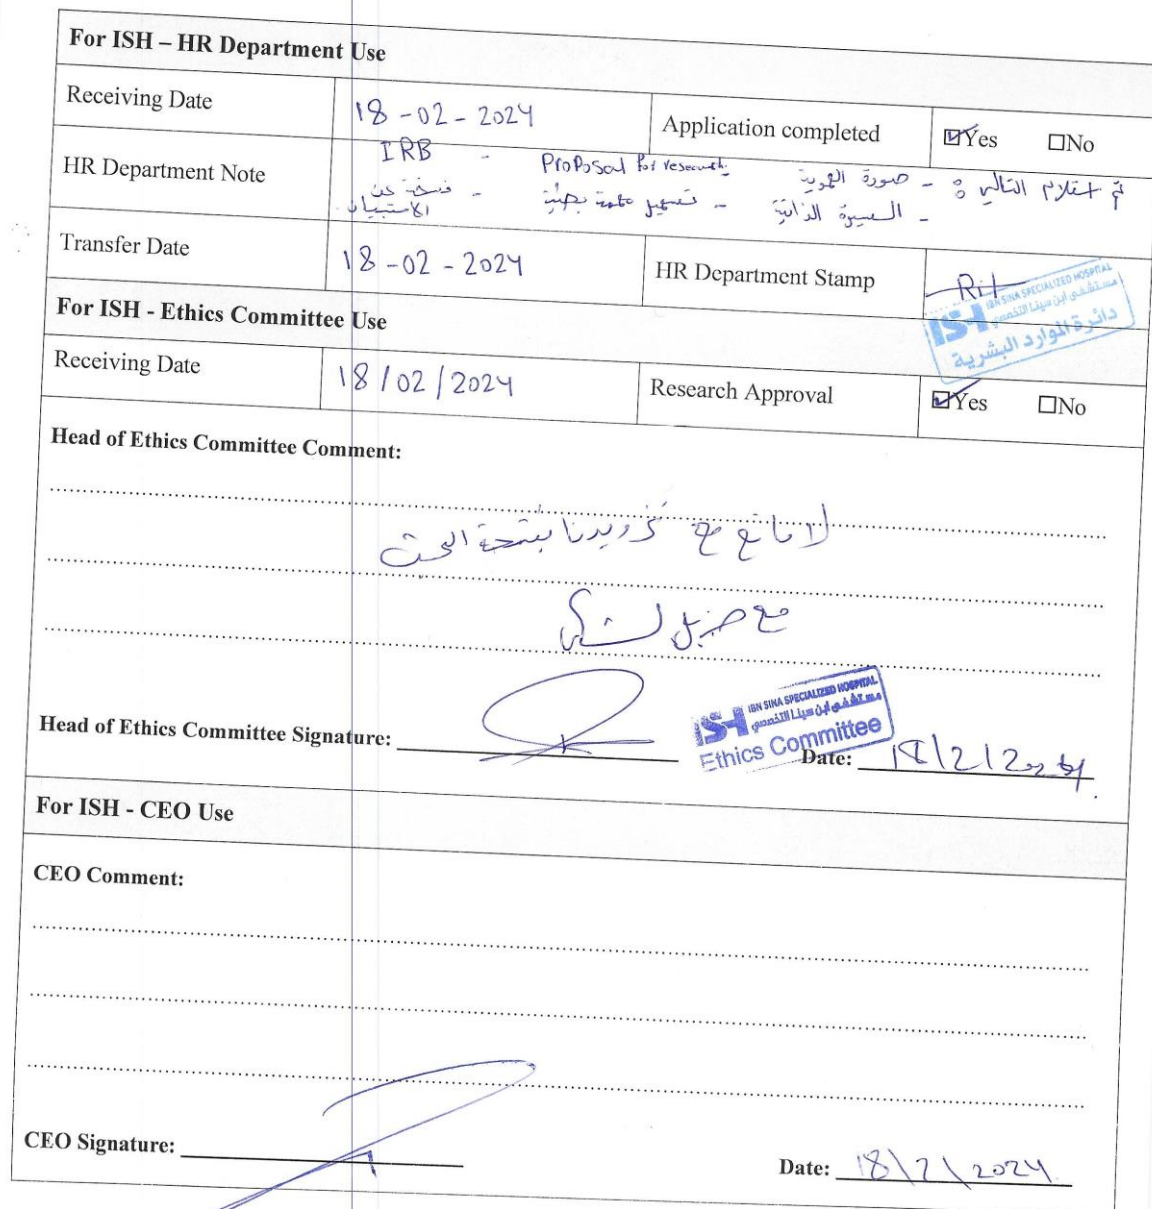 For ISH – HR Department Use
Receiving Date 18-02-2024 Application completed ☑Yes ☐No
HR Department Note تم استلام التالي : - صورة الهوية Proposal for research - IRB
- السيرة الذاتية - تسهيل مهمة بحثية - نسخة عن الاستبيان
Transfer Date 18-02-2024 HR Department Stamp
ISH IBN SINA SPECIALIZED HOSPITAL
مستشفى ابن سينا التخصصي
دائرة الموارد البشرية
For ISH - Ethics Committee Use
Receiving Date 18/02/2024 Research Approval ☑Yes ☐No
Head of Ethics Committee Comment:
لا مانع مع تزويدنا بنتيجة البحث
مع جزيل الشكر
ISH IBN SINA SPECIALIZED HOSPITAL
مستشفى ابن سينا التخصصي
Ethics Committee
Head of Ethics Committee Signature: Date: 18/2/2024.
For ISH - CEO Use
CEO Comment:
CEO Signature: Date: 18\2\2024